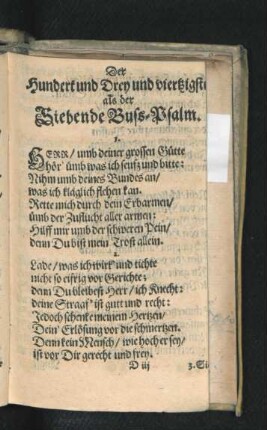 Der
Hundert und Drey und viertzigste
als der
Siebende Buß-Psalm.
1.
HERR/ umb deiner grossen Gütte
hör' ümb was ich seufz und bitte:
Nihm umb deines Bundes an/
was ich kläglich flehen kan.
Rette mich durch dein Erbarmen/
ümb der Zuflucht aller armen:
Hilff mir umb der schweren Pein/
denn Du bist mein Trost allein.
2.
Lade/ was ich wirk' und tichte
nicht so eifrig vor Gerichte:
denn Du bleibest Herr/ ich Knecht:
deine Straaf' ist gutt und recht:
Jedoch schenke meinem Hertzen/
Dein' Erlösung vor die schmertzen.
Denn kein Mensch/ wie hoch er sey/
ist vor Dir gerecht und frey.
D iij 3. Si